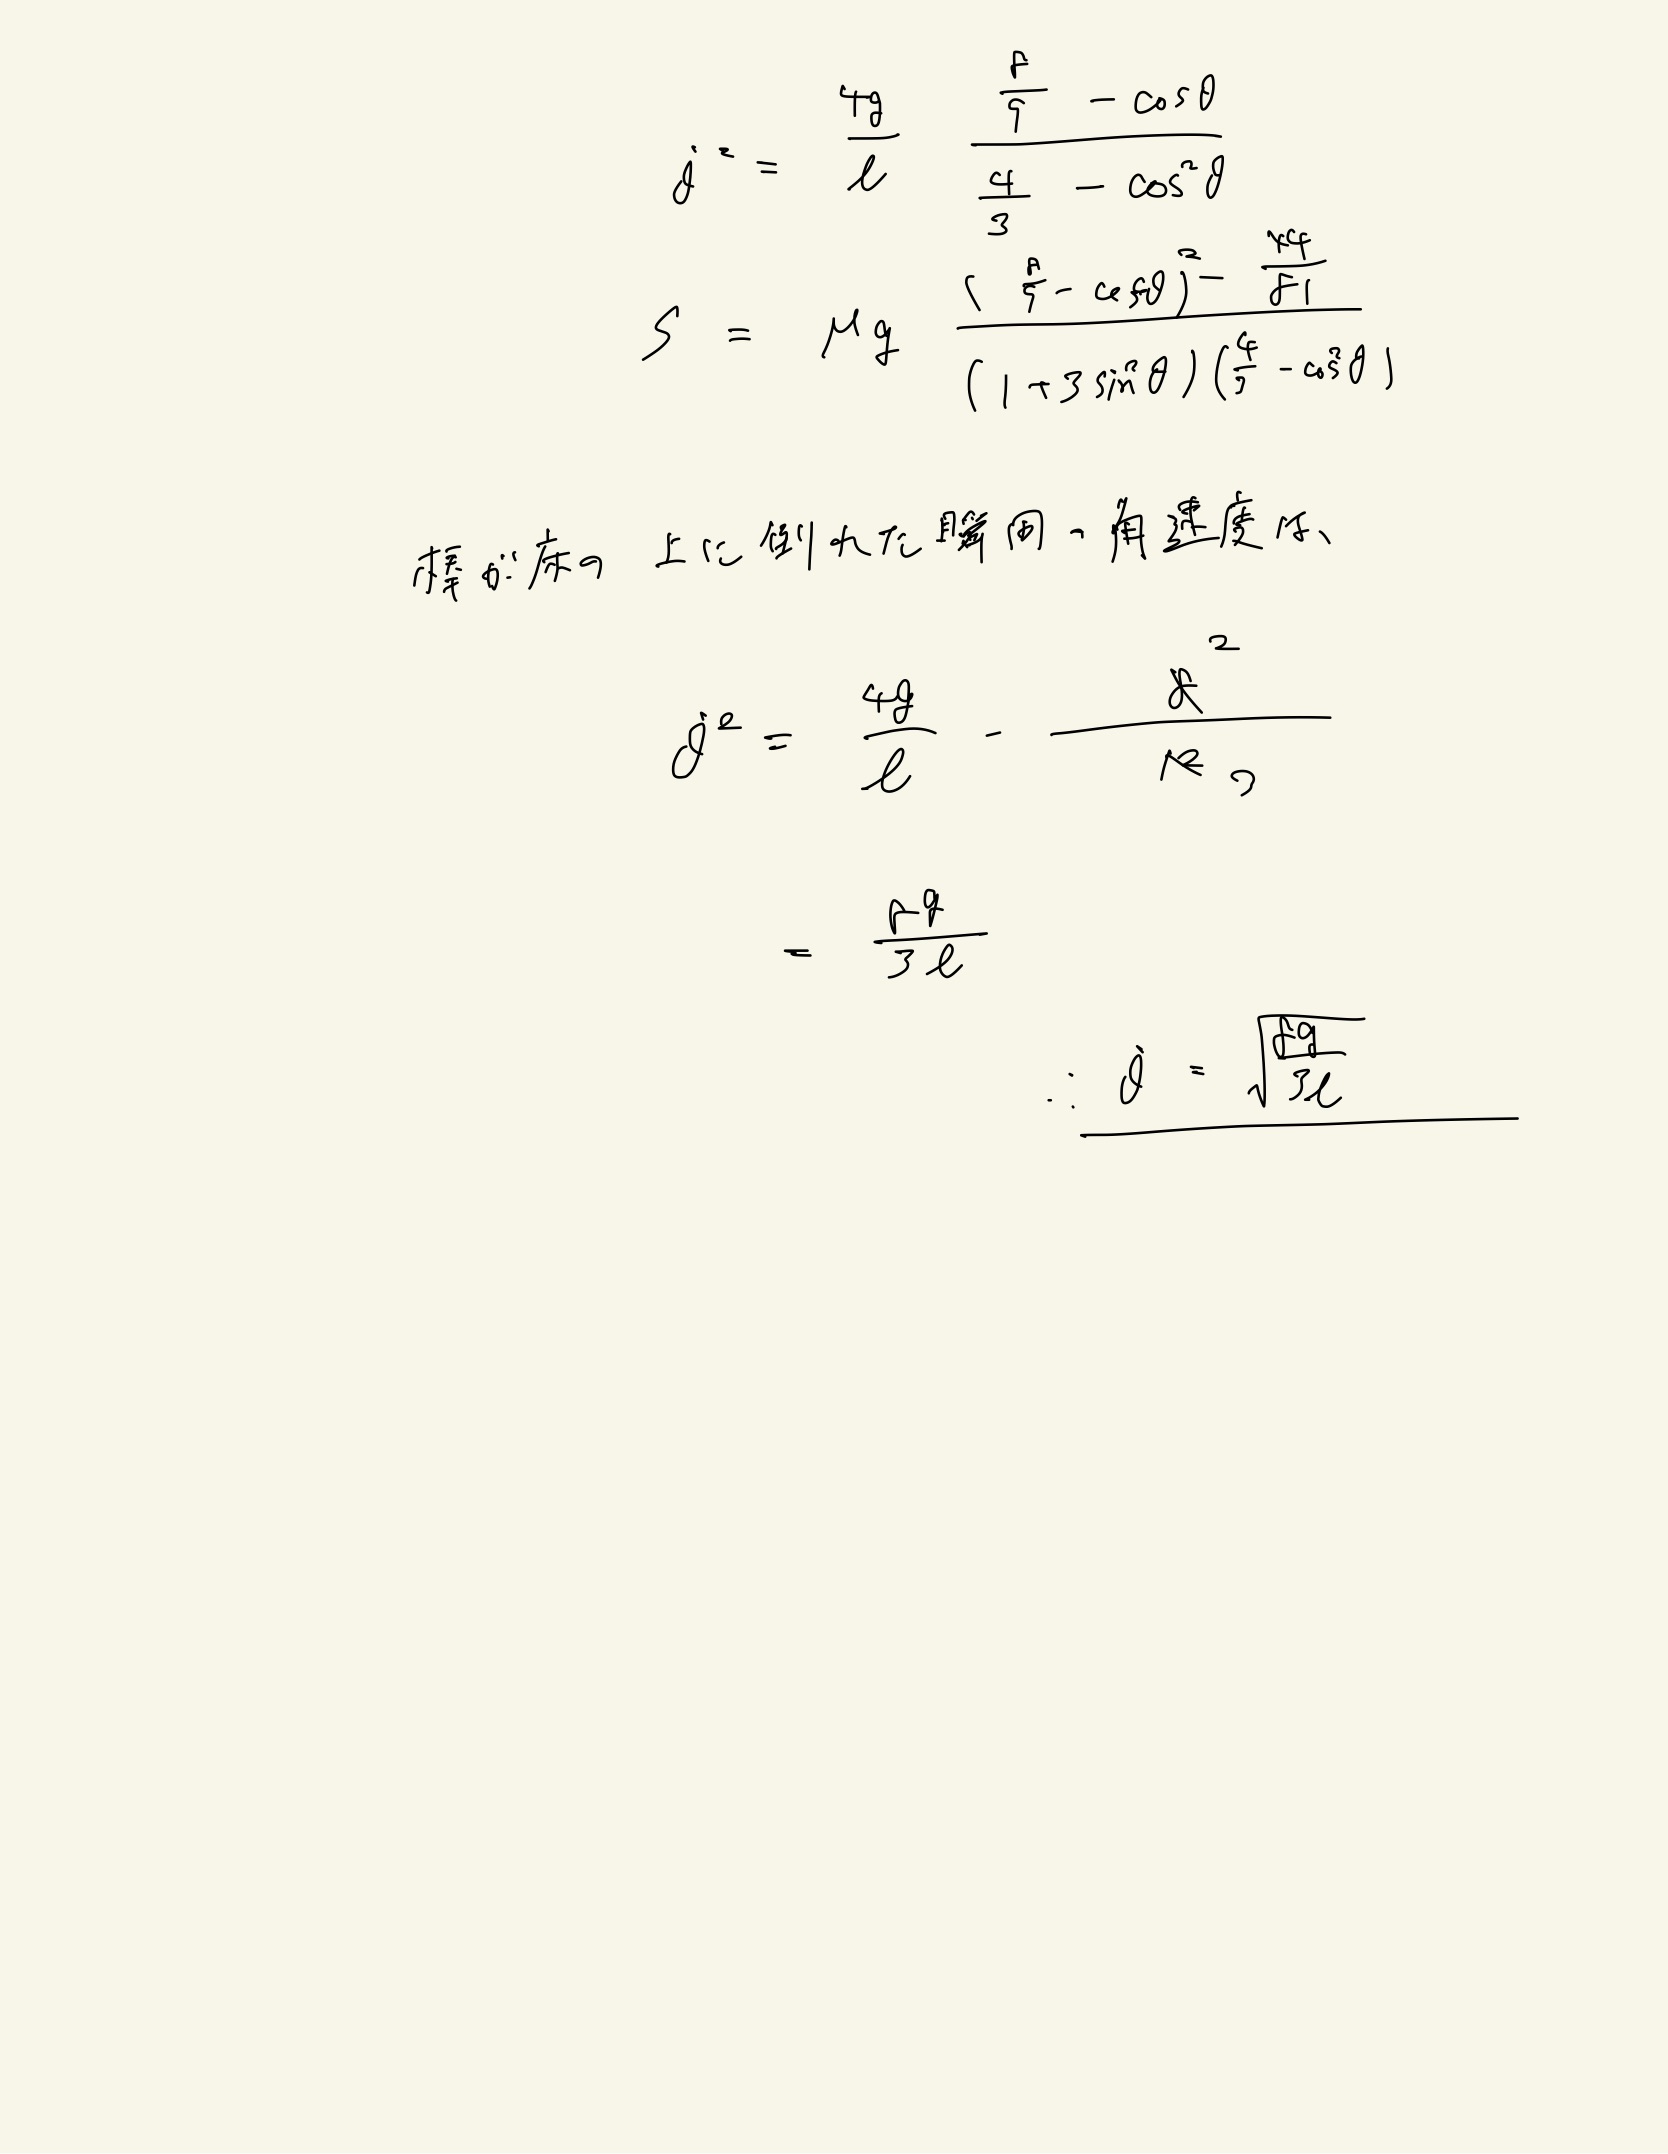 θ̇² = 4g/l (8/9 - cosθ)/(4/3 - cos²θ)
S = Mg ((8/9 - cosθ)² - 44/81)/((1+3sin²θ)(4/3 - cos²θ))
棒が床の上に倒れた瞬間の角速度は、
θ̇² = 4g/l
= 8g/3l
∴ θ̇ = √(8g/3l)